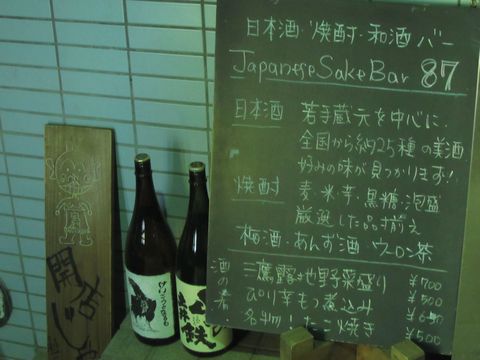 日本酒・焼酎・和酒バー
Japanese Sake Bar 87
日本酒 若手蔵元を中心に、
全国から約25種の美酒
好みの味が見つかります!
焼酎 麦・米・芋・黒糖・泡盛
厳選した品揃え
梅酒・あんず酒・ウーロン茶
酒の肴
三鷹露地野菜盛り ¥700
ぴり辛もつ煮込み ¥500
たこ焼き ¥500
開店じゃ
鉄